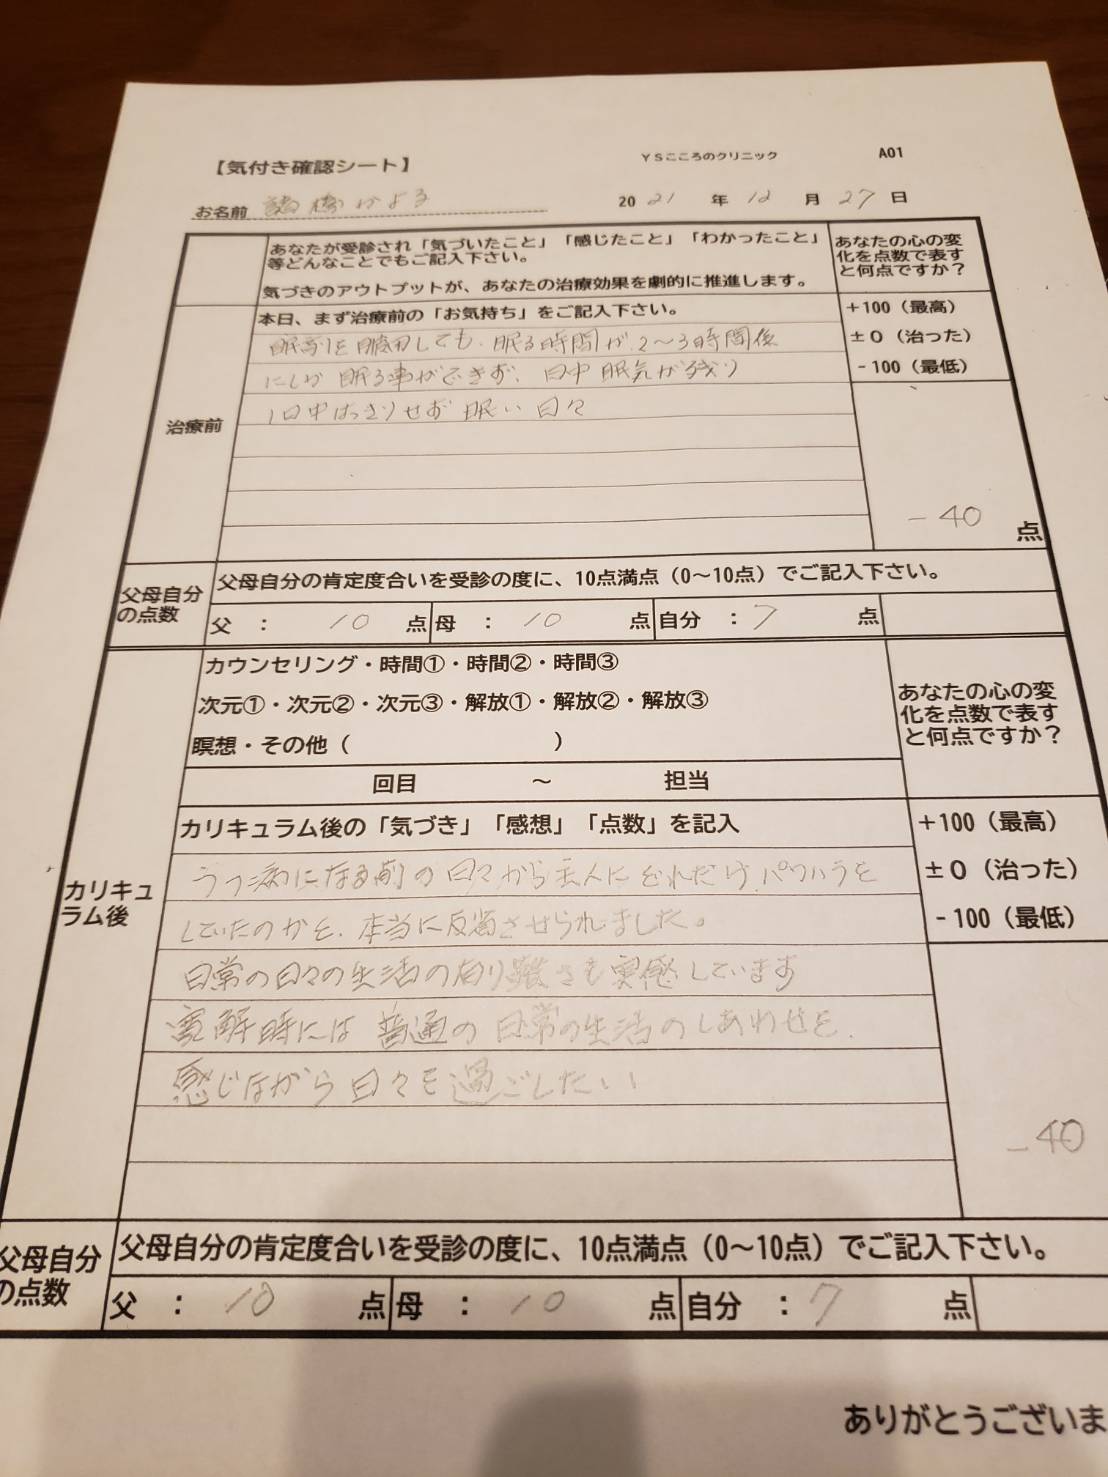 【気付き確認シート】
YSこころのクリニック
A01
お名前
2021年12月27日
あなたが受診され「気づいたこと」「感じたこと」「わかったこと」
等どんなことでもご記入下さい。
気づきのアウトプットが、あなたの治療効果を劇的に推進します。
あなたの心の変
化を点数で表す
と何点ですか？
治療前
本日、まず治療前の「お気持ち」をご記入下さい。
眠剤を服用しても、眠る時間が2～3時間後
にしか眠る事ができず、日中眠気が残り
1日中はっきりせず眠い日々
+100（最高）
±0（治った）
-100（最低）
-40 点
父母自分
の点数
父母自分の肯定度合いを受診の度に、10点満点（0～10点）でご記入下さい。
父 : 10 点 母 : 10 点 自分 : 7 点
カウンセリング・時間①・時間②・時間③
次元①・次元②・次元③・解放①・解放②・解放③
瞑想・その他（ ）
回目 ～ 担当
あなたの心の変
化を点数で表す
と何点ですか？
カリキュ
ラム後
カリキュラム後の「気づき」「感想」「点数」を記入
うつ病になる前の日々から主人にどれだけパワハラを
していたのかを、本当に反省させられました。
日常の日々の生活の有り難さも実感しています
寛解時には普通の日常の生活のしあわせを、
感じながら日々を過ごしたい
+100（最高）
±0（治った）
-100（最低）
-40
父母自分
の点数
父母自分の肯定度合いを受診の度に、10点満点（0～10点）でご記入下さい。
父 : 10 点 母 : 10 点 自分 : 7 点
ありがとうございま